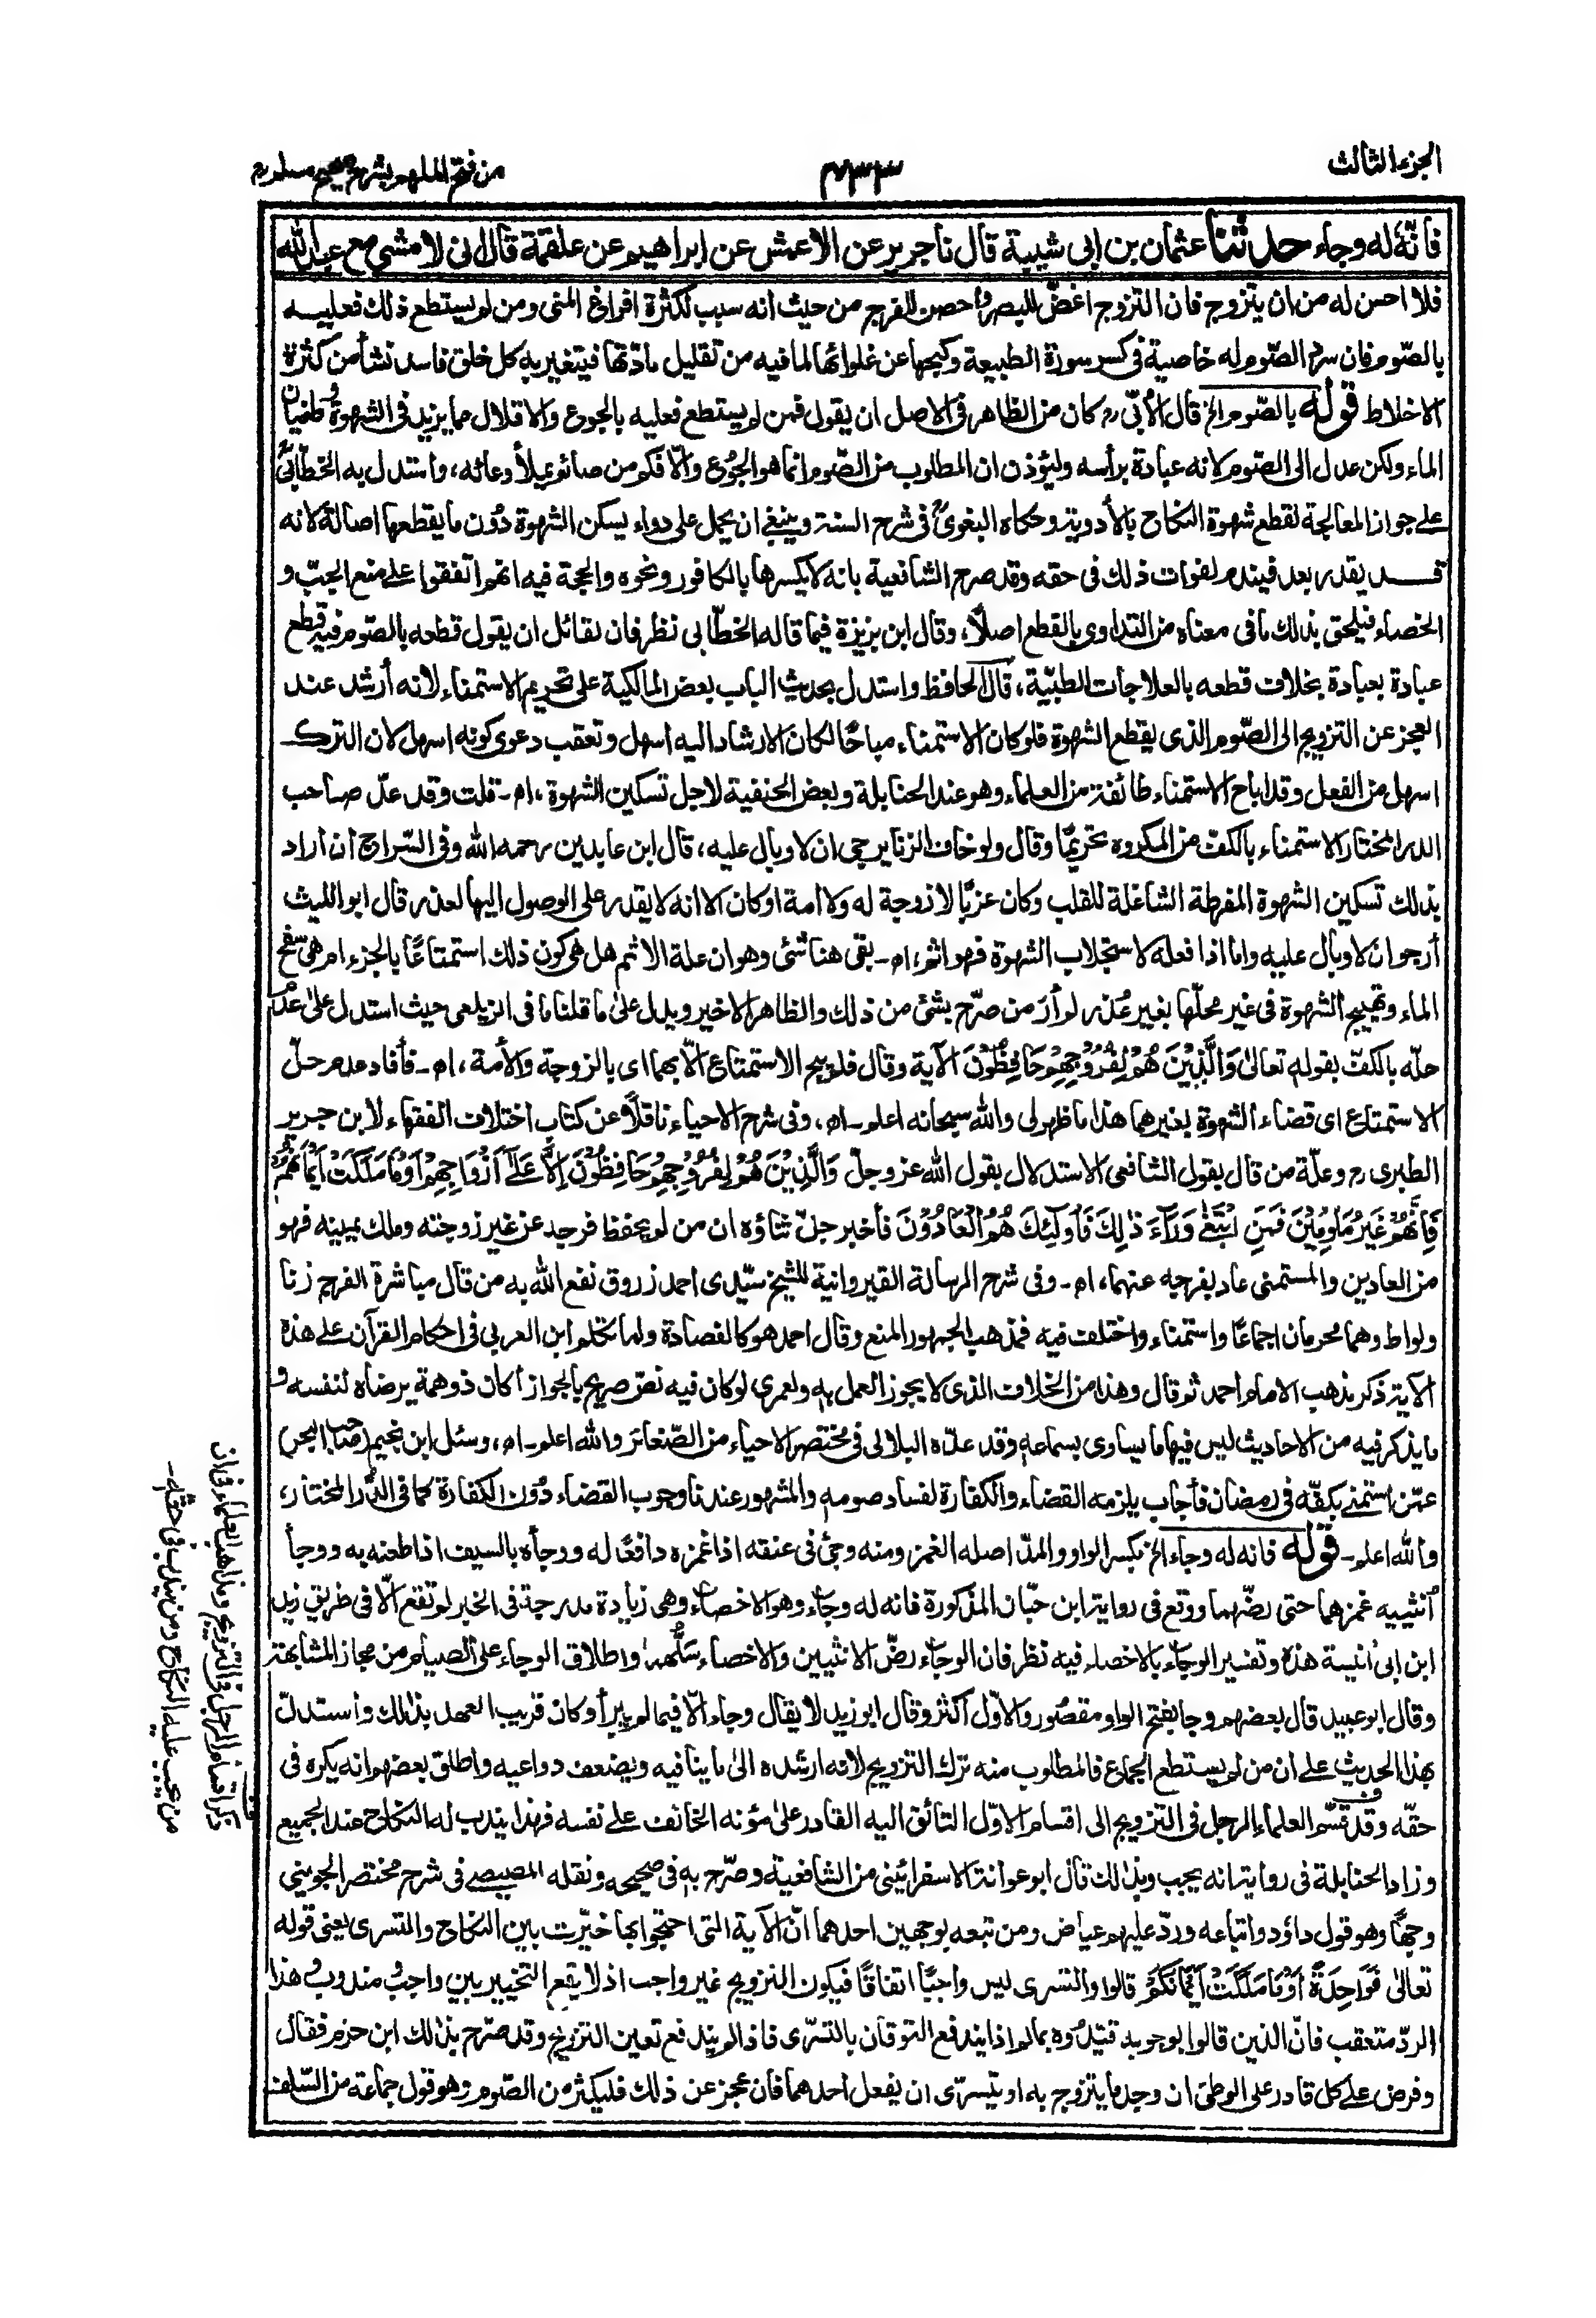 الجزء الثالث
٤٣٣
من فتح الملهم بشرح صحيح مسلم
فانّه له وجاء حدثنا عثمان بن ابى شيبة قال نا جرير عن الاعمش عن ابراهيم عن علقمة قال انى لامشى مع عبد الله
فلا احسن له من ان يتزوج فان التزوج اغضّ للبصر واحصن للفرج من حيث انه سبب لكثرة افراغ المنى ومن لم يستطع ذلك فعليه
بالصّوم فان سرد الصّوم له خاصية فى كسر سورة الطبيعة وكبحها عن غلوائها لما فيه من تقليل مادّتها فيتغير به كل خلق فاسد نشأ من كثرة
الاخلاط قوله بالصّوم الخ قال الأبّى رح كان من الظاهر فى الاصل ان يقول فمن لم يستطع فعليه بالجوع والاقلال مما يزيد فى الشهوة وطغيان
الماء ولكن عدل الى الصّوم لانه عبادة برأسه وليؤذن ان المطلوب من الصّوم انما هو الجوع والّا فكم من صائم يملأ وعائه، واستدل به الخطّابىّ
على جواز المعالجة لقطع شهوة النكاح بالأدوية وحكاه البغوىّ فى شرح السنة وينبغى ان يحمل على دواء يسكن الشهوة دون ما يقطعها اصالة لانه
قد يقدر بعد فيندم لفوات ذلك فى حقه وقد صرح الشافعية بانه لا يكسرها بالكافور ونحوه والحجة فيه انهم اتفقوا على منع الجبّ و
الخصاء فيلحق بذلك ما فى معناه من التداوى بالقطع اصلًا، وقال ابن بزيزة فيما قاله الخطّابى نظر فان لقائل ان يقول قطعه بالصّوم فيه قطع
عبادة بعبادة بخلاف قطعه بالعلاجات الطبّية، قال الحافظ واستدل بحديث الباب بعض المالكية على تحريم الاستمناء لانه أرشد عند
العجز عن التزويج الى الصّوم الذى يقطع الشهوة فلو كان الاستمناء مباحًا لكان الارشاد اليه اسهل وتعقب دعوى كونه اسهل لان الترك
اسهل من الفعل وقد اباح الاستمناء طائفة من العلماء وهو عند الحنابلة وبعض الحنفية لاجل تسكين الشهوة، اهـ - قلت وقد عدّ صاحب
الدر المختار الاستمناء بالكفّ من المكروه تحريمًا وقال ولو خاف الزنا يرجى ان لا وبال عليه، قال ابن عابدين رحمه الله وفى السّراج ان اراد
بذلك تسكين الشهوة المفرطة الشاغلة للقلب وكان عزبًا لا زوجة له ولا امة او كان الا انه لا يقدر على الوصول اليها لعذر قال ابو الليث
أرجو ان لا وبال عليه واما اذا فعله لاستجلاب الشهوة فهو اثم، اهـ - بقى هنا شئ وهو ان علة الاثم هل هى كون ذلك استمتاعًا بالجزء ام هى سفح
الماء وتهييج الشهوة فى غير محلّها بغير عُذر لم أرَ من صرّح بشئ من ذلك والظاهر الاخير ويدل على ما قلنا ما فى الزيلعى حيث استدل على عدم
حلّه بالكفّ بقوله تعالىٰ وَالَّذِيْنَ هُمْ لِفُرُوْجِهِمْ حَافِظُوْنَ الآية وقال فلم يبح الاستمتاع الّا بهما اى بالزوجة والأمة، اهـ - فأفاد عدم حلّ
الاستمتاع اى قضاء الشهوة بغيرهما هذا ما ظهر لى والله سبحانه اعلم - اهـ، وفى شرح الاحياء ناقلًا عن كتاب اختلاف الفقهاء لابن جرير
الطبرى رح وعلّة من قال بقول الشافعى الاستدلال بقول الله عز وجلّ وَالَّذِيْنَ هُمْ لِفُرُوْجِهِمْ حَافِظُوْنَ اِلَّا عَلٰٓى اَزْوَاجِهِمْ اَوْ مَا مَلَكَتْ اَيْمَانُهُمْ
فَاِنَّهُمْ غَيْرُ مَلُوْمِيْنَ فَمَنِ ابْتَغٰى وَرَآءَ ذٰلِكَ فَاُولٰٓئِكَ هُمُ الْعَادُوْنَ فأخبر جلّ ثناؤه ان من لم يحفظ فرجه عن غير زوجته وملك يمينه فهو
من العادين والمستمنى عاد بفرجه عنهما، اهـ - وفى شرح الرسالة القيروانية للشيخ سيّدى احمد زروق نفع الله به من قال مباشرة الفرج زنا
ولواط وهما محرمان اجماعًا واستمناء واختلف فيه فمذهب الجمهور المنع وقال احمد هو كالفصادة ولما تكلم ابن العربى فى احكام القرآن على هذه
الآية ذكر مذهب الامام احمد ثم قال وهذا من الخلاف الذى لا يجوز العمل به ولعمرى لو كان فيه نصّ صريح بالجواز أكان ذو همة يرضاه لنفسه و
ما يذكر فيه من الاحاديث ليس فيها ما يساوى بسماعه وقد عدّه البلالى فى مختصر الاحياء من الصّغائر والله اعلم - اهـ، وسئل ابن نجيم (صاحب البحر)
عمّن استمنى بكفّه فى رمضان فأجاب يلزمه القضاء والكفارة لفساد صومه والمشهور عندنا وجوب القضاء دُوْن الكفارة كما فى الدُّر المختار،
والله اعلم - قوله فانه له وجاء الخ بكسر الواو والمدّ اصله الغمز ومنه وجئ فى عنقه اذا غمزه دافعًا له ووجأه بالسيف اذا طعنه به ووجأ
أنثييه غمزهما حتى رضّهما ووقع فى رواية ابن حبّان المذكورة فانه له وجاء وهو الاخصاء وهى زيادة مدرجة فى الخبر لم تقع الّا فى طريق زيد
ابن ابى أنيسة هذه وتفسير الوجاء بالاخصاء فيه نظر فان الوجاء رضّ الانثيين والاخصاء سَلُّهما واطلاق الوجاء على الصيام من مجاز المشابهة
وقال ابو عبيد قال بعضهم وجا بفتح الواو مقصُور والاوّل أكثر وقال ابو زيد لا يقال وجاء الّا فيما لم يبرأ وكان قريب العهد بذلك وأستدلّ
بهذا الحديث على ان من لم يستطع الجماع فالمطلوب منه ترك التزويج لانه ارشده الىٰ ما ينافيه ويضعف دواعيه واطلق بعضهم انه يكره فى
حقّه وقد قسّم العلماء الرجل فى التزويج الى اقسام الاوّل التائق اليه القادر على مؤنه الخائف على نفسه فهذا يندب له النكاح عند الجميع
وزاد الحنابلة فى رواية انه يجب وبذلك قال ابو عوانة الاسفرائينى من الشافعية وصرّح به فى صحيحه ونقله المصيصى فى شرح مختصر الجوينى
وجهًا وهو قول داؤد واتباعه وردّ عليهم عياض ومن تبعه بوجهين احدهما انّ الآية التى احتجّوا بها خيّرت بين النكاح والتسرى يعنى قوله
تعالىٰ فَوَاحِدَةً اَوْ مَا مَلَكَتْ اَيْمَانُكُمْ قالوا والتسرى ليس واجبًا اتفاقًا فيكون التزويج غير واجب اذ لا يقع التخيير بين واجب ومندوب وهذا
الردّ متعقب فانّ الذين قالوا بوجوبه قيّدُوه بما اذا لم يندفع التوقان بالتسرّى فاذا لم يندفع تعين التزويج وقد صرّح بذلك ابن حزم فقال
وفرض على كل قادر على الوطئ ان وجد ما يتزوج به او يتسرّى ان يفعل احدهما فان عجز عن ذلك فليكثر من الصّوم وهو قول جماعة من السّلف
ذكر اقسام الرجل فى التزويج ومذاهب العلماء فى ان
من يجب عليه النكاح ومن يندب فى حقّه -